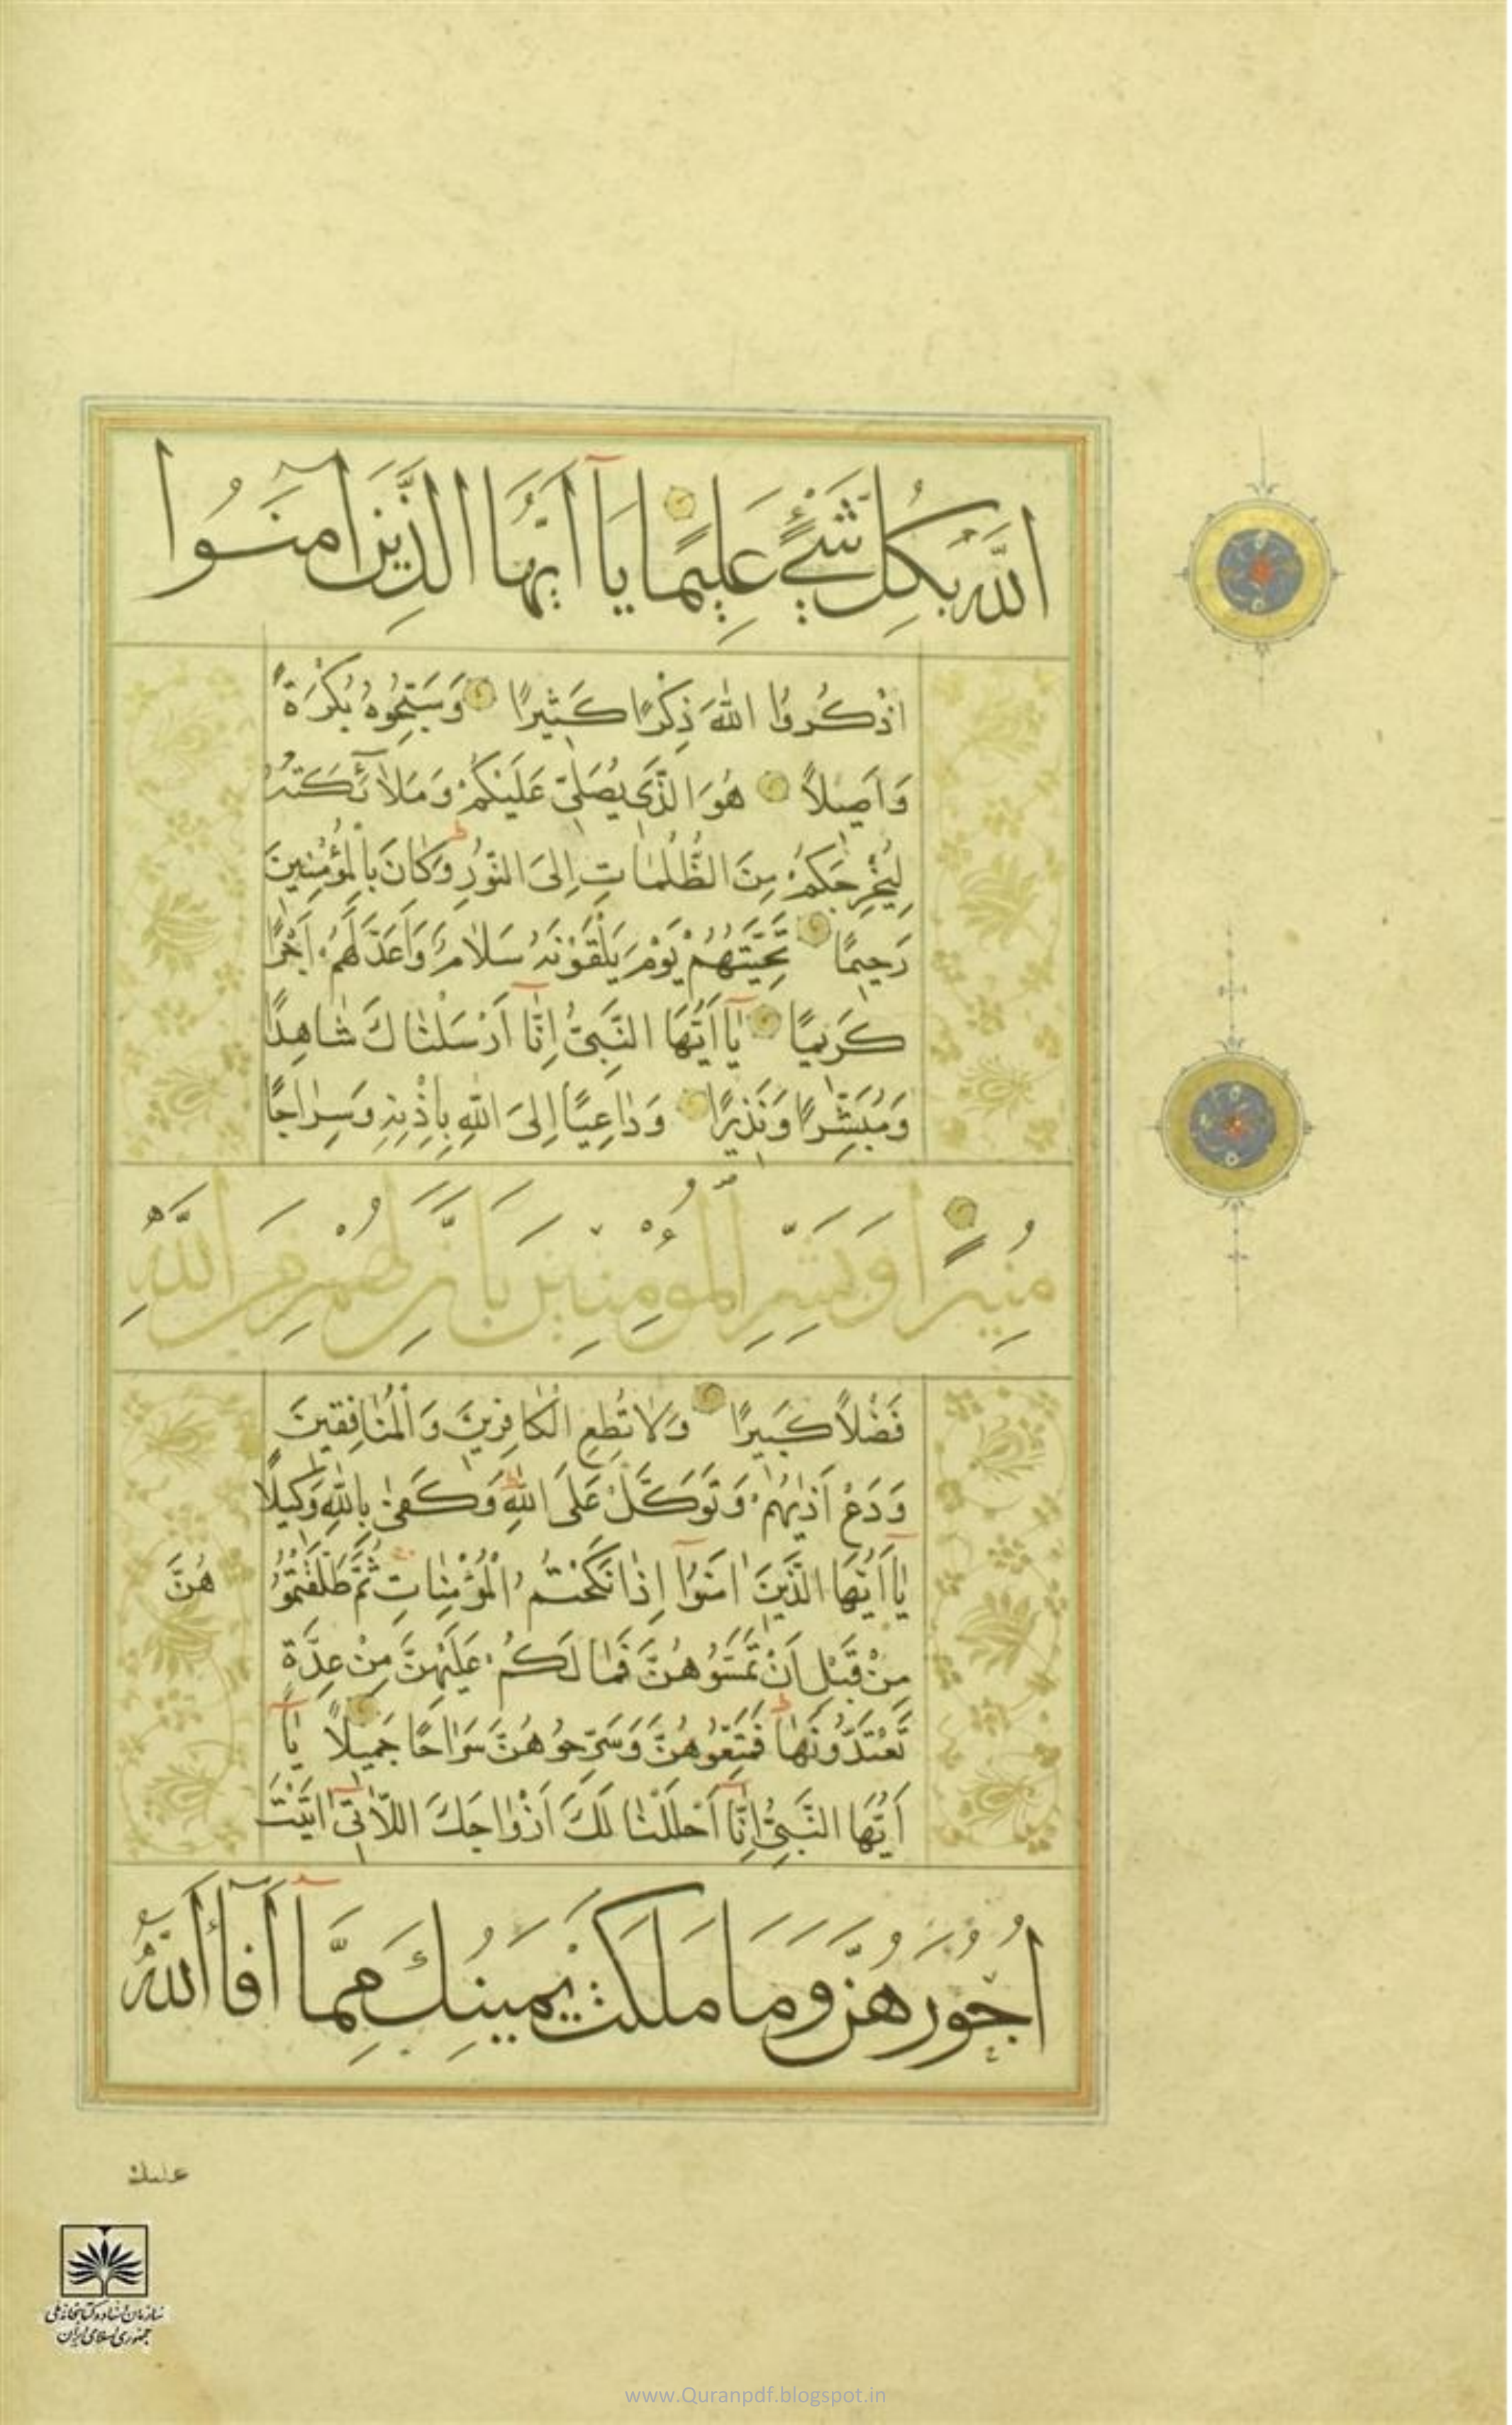 اللَّهُ بِكُلِّ شَيْءٍ عَلِيمًا يَا أَيُّهَا الَّذِينَ آمَنُوا
اذْكُرُوا اللَّهَ ذِكْرًا كَثِيرًا وَسَبِّحُوهُ بُكْرَةً
وَأَصِيلًا هُوَ الَّذِي يُصَلِّي عَلَيْكُمْ وَمَلَائِكَتُهُ
لِيُخْرِجَكُمْ مِنَ الظُّلُمَاتِ إِلَى النُّورِ وَكَانَ بِالْمُؤْمِنِينَ
رَحِيمًا تَحِيَّتُهُمْ يَوْمَ يَلْقَوْنَهُ سَلَامٌ وَأَعَدَّ لَهُمْ أَجْرًا
كَرِيمًا يَا أَيُّهَا النَّبِيُّ إِنَّا أَرْسَلْنَاكَ شَاهِدًا
وَمُبَشِّرًا وَنَذِيرًا وَدَاعِيًا إِلَى اللَّهِ بِإِذْنِهِ وَسِرَاجًا
مُنِيرًا وَبَشِّرِ الْمُؤْمِنِينَ بِأَنَّ لَهُمْ مِنَ اللَّهِ
فَضْلًا كَبِيرًا وَلَا تُطِعِ الْكَافِرِينَ وَالْمُنَافِقِينَ
وَدَعْ أَذٰيهُمْ وَتَوَكَّلْ عَلَى اللَّهِ وَكَفَىٰ بِاللَّهِ وَكِيلًا
يَا أَيُّهَا الَّذِينَ آمَنُوا إِذَا نَكَحْتُمُ الْمُؤْمِنَاتِ ثُمَّ طَلَّقْتُمُو
هُنَّ
مِنْ قَبْلِ أَنْ تَمَسُّوهُنَّ فَمَا لَكُمْ عَلَيْهِنَّ مِنْ عِدَّةٍ
تَعْتَدُّونَهَا فَمَتِّعُوهُنَّ وَسَرِّحُوهُنَّ سَرَاحًا جَمِيلًا يَا
أَيُّهَا النَّبِيُّ إِنَّا أَحْلَلْنَا لَكَ أَزْوَاجَكَ اللَّاتِي آتَيْتَ
أُجُورَهُنَّ وَمَا مَلَكَتْ يَمِينُكَ مِمَّا أَفَاءَ اللَّهُ
عليك
سازمان اسناد و کتابخانه ملی
جمهوری اسلامی ایران
www.Quranpdf.blogspot.in